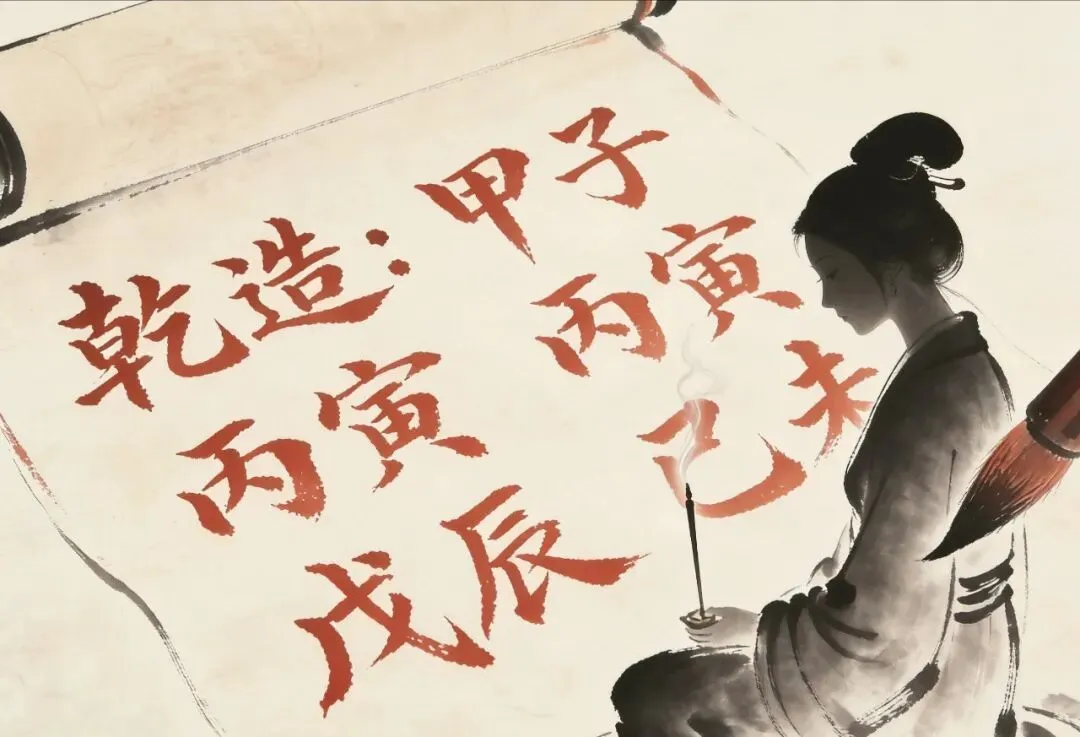 乾造：甲子
丙寅 丙寅
戊辰 己未